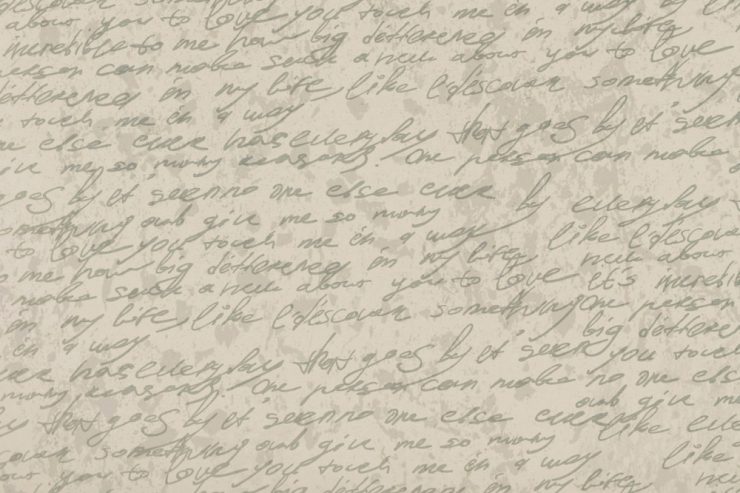 about you to love you touch me in a way by
incredible to me how big differered in my life
person can make such a new about you to love
differered in my life, like I discovar something
touch me in a way
else ever has everyday that goes by it seem
give me so many reasons One person can make
goes by it seem no one else ever by everyday
something and give me so many
to love you touch me in a way like I discovar
me how big differered in my life new about
make such a new about you to love it's incredible
in my life, like I discovar something One person
in a way big differered
ever has everyday that goes by it seem you touch
many reasons One person can make no one else
that goes by it seem no one else ever and give me
something and give me so many like
about you to love you touch me in a way